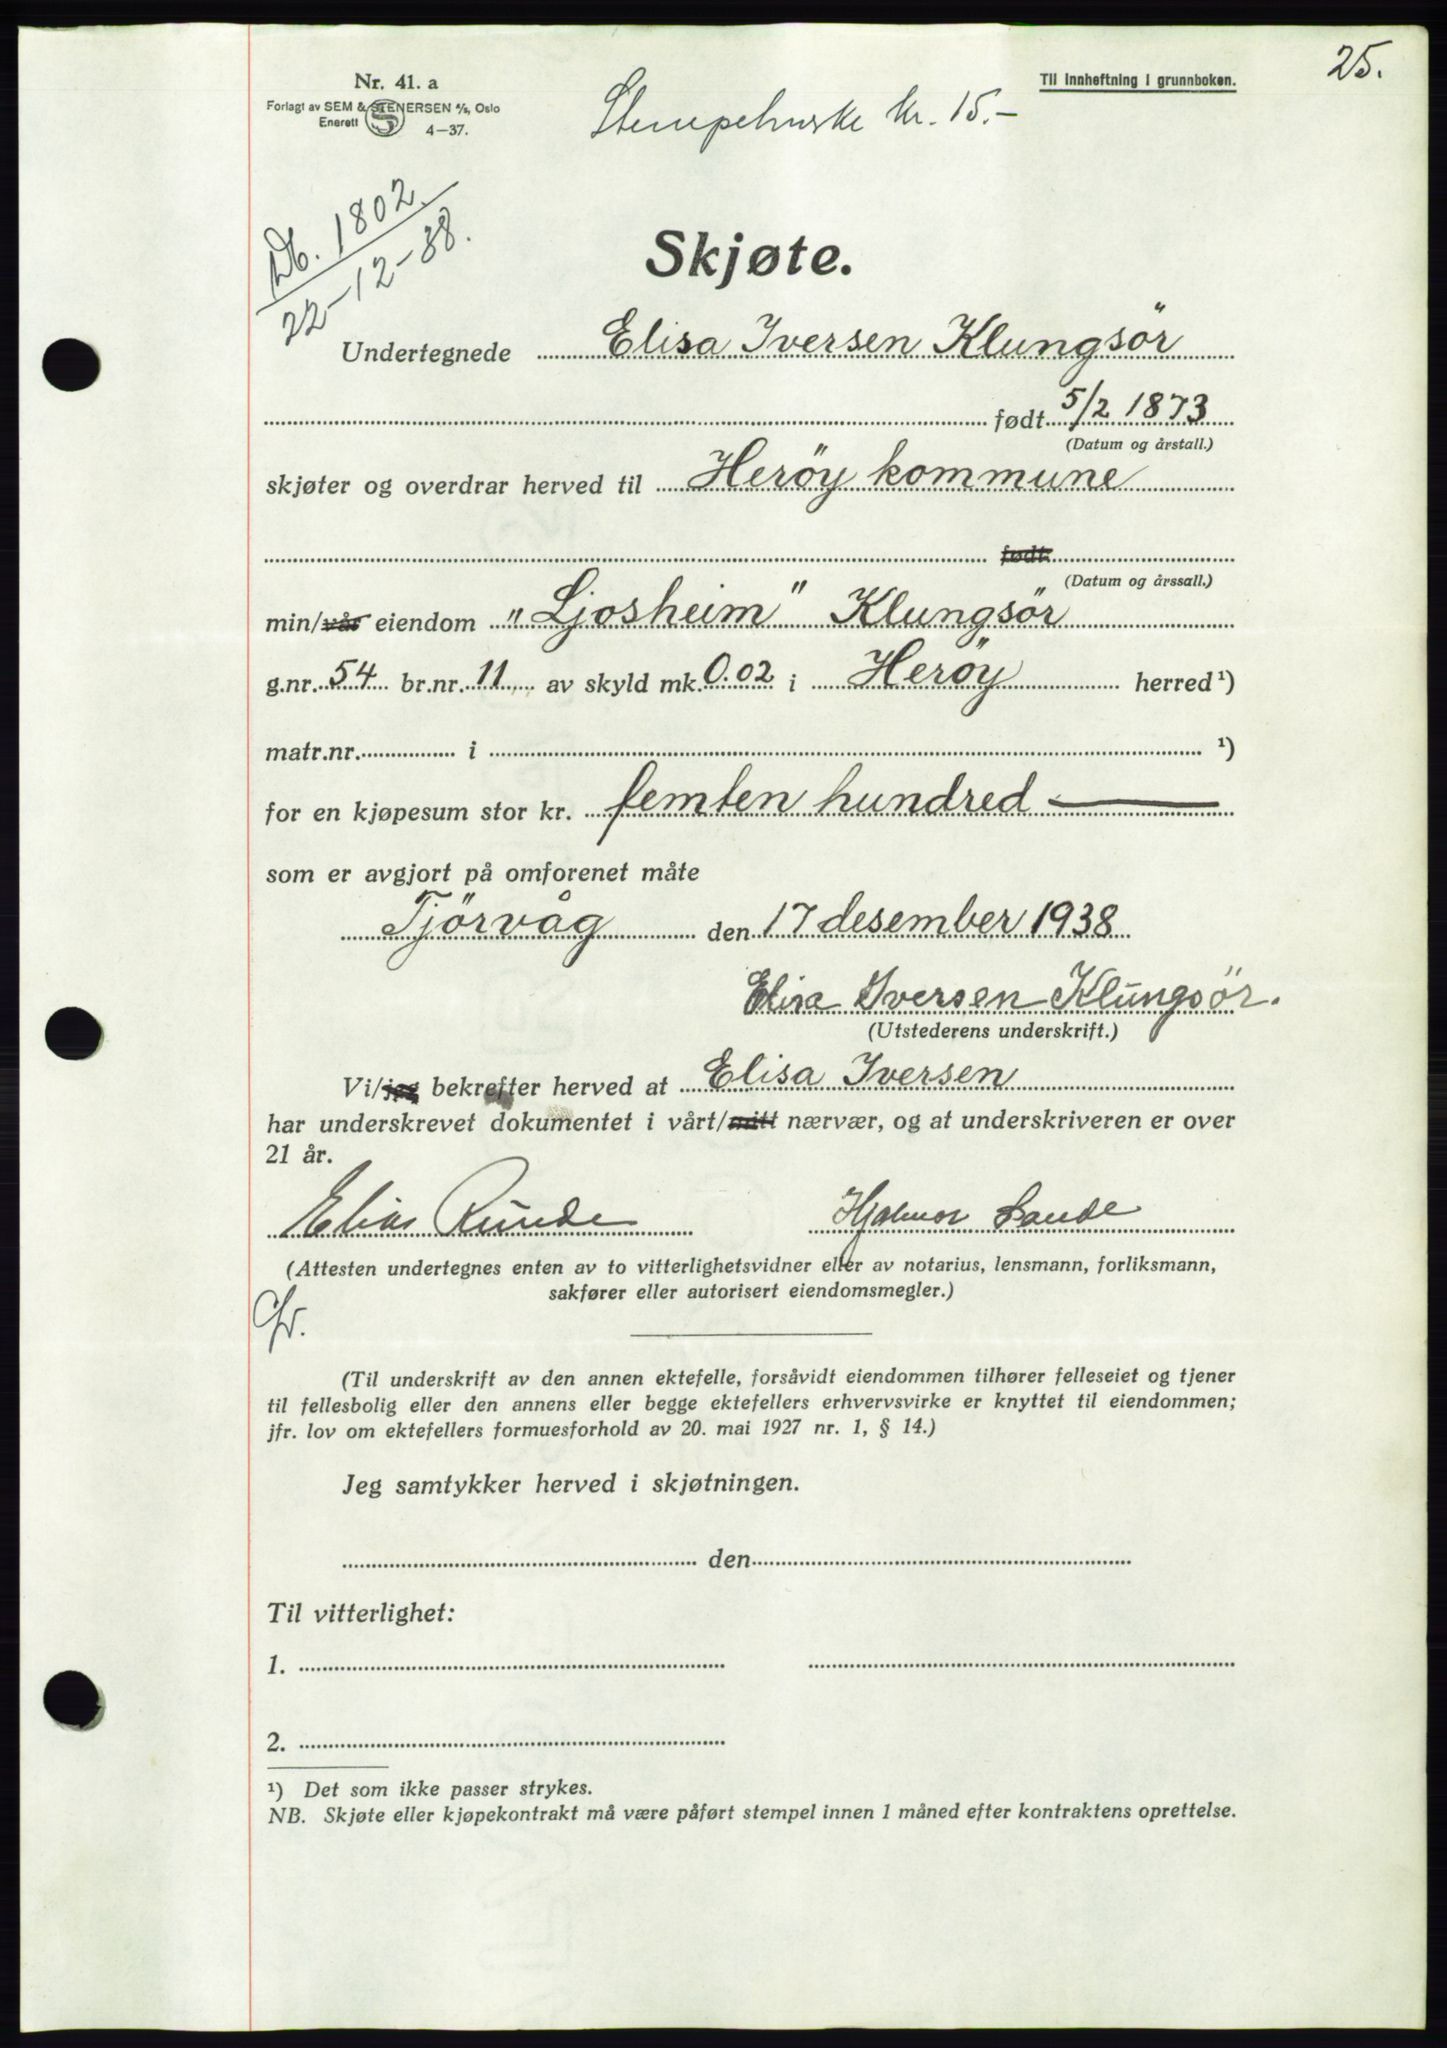 25.
Nr. 41. a
Til innheftning i grunnboken.
Forlagt av SEM & STENERSEN A/S, Oslo
Enerett S 4-37.
kr. 15.-
Db. 1802
22-12-38.
Skjøte.
Undertegnede Elisa Iversen Klungsör
født 5/2 1873
(Datum og årstall.)
skjøter og overdrar herved til Heröy kommune
født
(Datum og årssall.)
min/vår eiendom "Ljosheim" Klungsör
g.nr. 54 br.nr. 11 av skyld mk. 0.02 i Heröy herred ¹)
matr.nr. i ¹)
for en kjøpesum stor kr. femten hundred
som er avgjort på omforenet måte
Tjörvåg den 17 desember 1938
Elisa Iversen Klungsör.
(Utstederens underskrift.)
Vi/jeg bekrefter herved at Elisa Iversen
har underskrevet dokumentet i vårt/mitt nærvær, og at underskriveren er over
21 år.
Elias Runde Hjalmar Sande
(Attesten undertegnes enten av to vitterlighetsvidner eller av notarius, lensmann, forliksmann,
sakfører eller autorisert eiendomsmegler.)
(Til underskrift av den annen ektefelle, forsåvidt eiendommen tilhører felleseiet og tjener
til fellesbolig eller den annens eller begge ektefellers erhvervsvirke er knyttet til eiendommen;
jfr. lov om ektefellers formuesforhold av 20. mai 1927 nr. 1, § 14.)
Jeg samtykker herved i skjøtningen.
den
Til vitterlighet:
1.
2.
¹) Det som ikke passer strykes.
NB. Skjøte eller kjøpekontrakt må være påført stempel innen 1 måned efter kontraktens oprettelse.